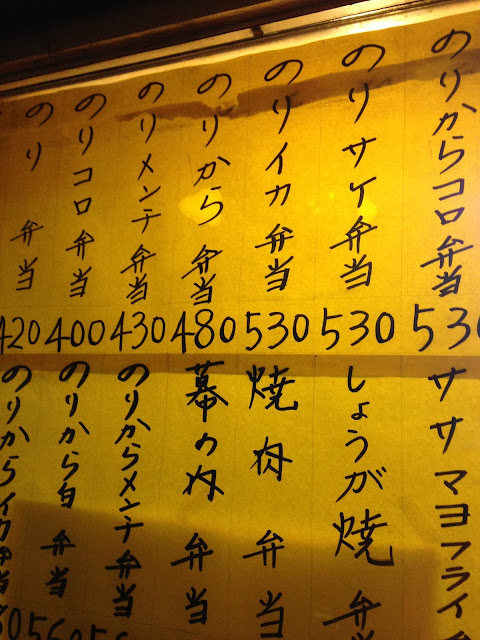 のりからコロ弁当
530
のりサケ弁当
530
のりイカ弁当
530
のりから弁当
480
のりメンチ弁当
430
のりコロ弁当
400
のり弁当
420
ササマヨフライ
しょうが焼弁
焼肉弁当
幕の内弁当
のりからメンチ弁当
のりから白弁当
のりからイカ弁当